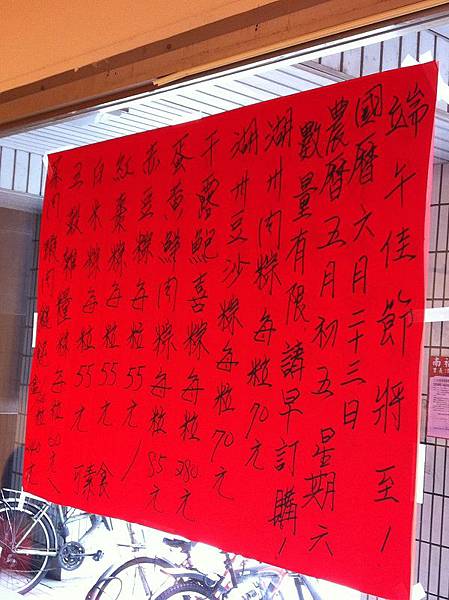 端午佳節將至!
國曆六月二十三日
農曆五月初五 星期六
數量有限請早訂購!
湖州肉粽每粒70元
湖州豆沙粽每粒70元
干露鮑喜粽每粒280元
蛋黃鮮肉粽每粒85元
赤豆粽每粒55元
紅棗粽每粒55元
白米粽每粒55元
五穀雜糧粽每粒60元
可素食